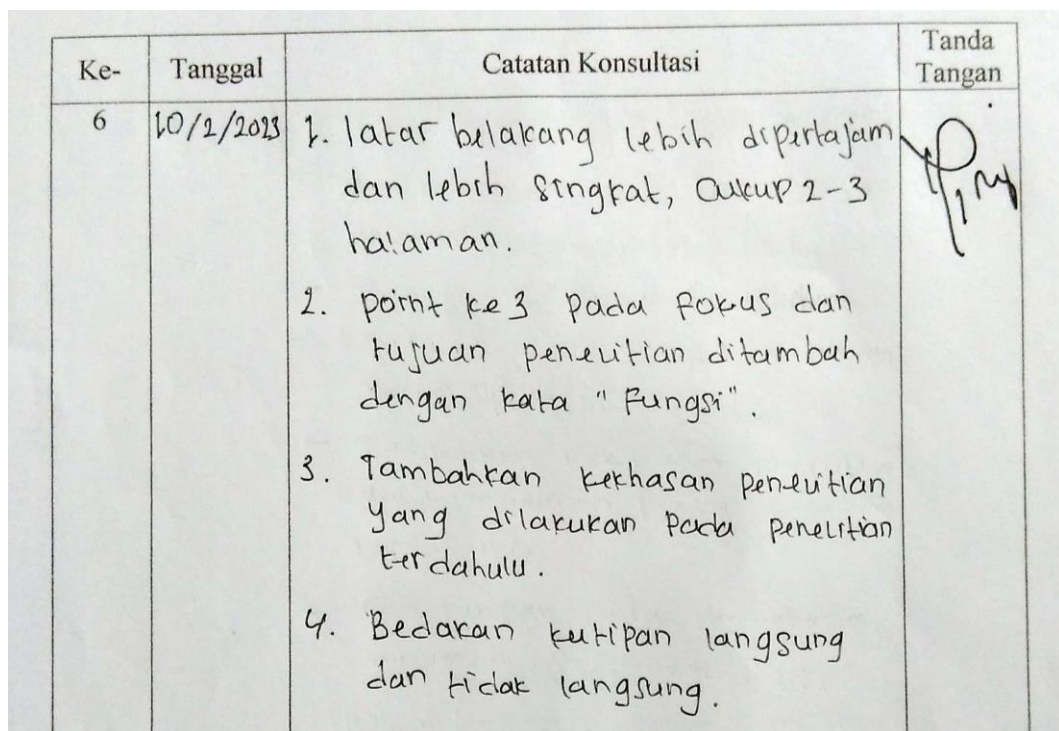 Ke- Tanggal Catatan Konsultasi Tanda Tangan
6 10/2/2023 1. latar belakang lebih dipertajam
dan lebih singkat, cukup 2-3
halaman.
2. point ke 3 pada fokus dan
tujuan penelitian ditambah
dengan kata "Fungsi".
3. Tambahkan kekhasan penelitian
yang dilakukan pada penelitian
terdahulu.
4. Bedakan kutipan langsung
dan tidak langsung.